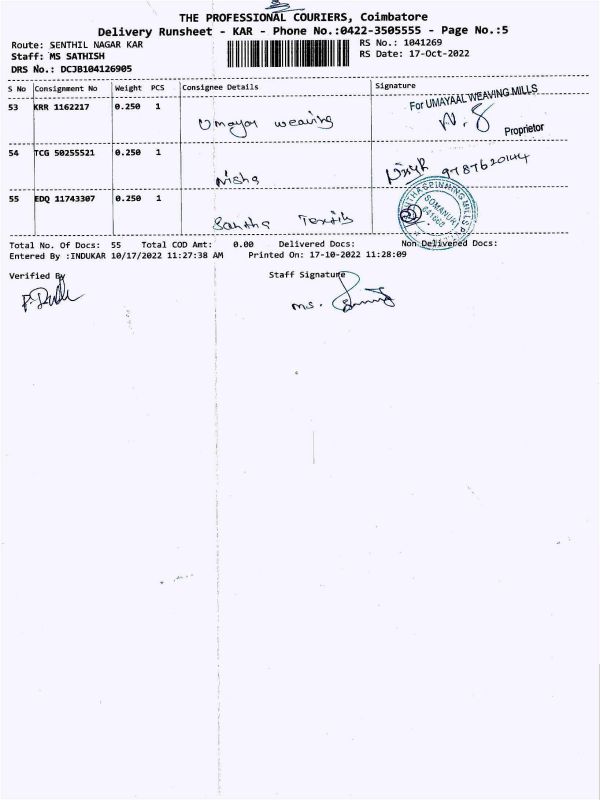 THE PROFESSIONAL COURIERS, Coimbatore
Delivery Runsheet - KAR - Phone No.:0422-3505555 - Page No.:5
Route: SENTHIL NAGAR KAR
Staff: MS SATHISH
DRS No.: DCJB104126905
RS No.: 1041269
RS Date: 17-Oct-2022
S No Consignment No Weight PCS Consignee Details Signature
53 KRR 1162217 0.250 1 Umayar weaving For UMAYAAL WEAVING MILLS
N. 8
Proprietor
54 TCG 50255521 0.250 1 Nisha 9787620144
55 EDQ 11743307 0.250 1 Santha Textils
SPINNING MILLS
SOMANUR
Total No. Of Docs: 55 Total COD Amt: 0.00 Delivered Docs: Non Delivered Docs:
Entered By :INDUKAR 10/17/2022 11:27:38 AM Printed On: 17-10-2022 11:28:09
Verified By Staff Signature
ms.